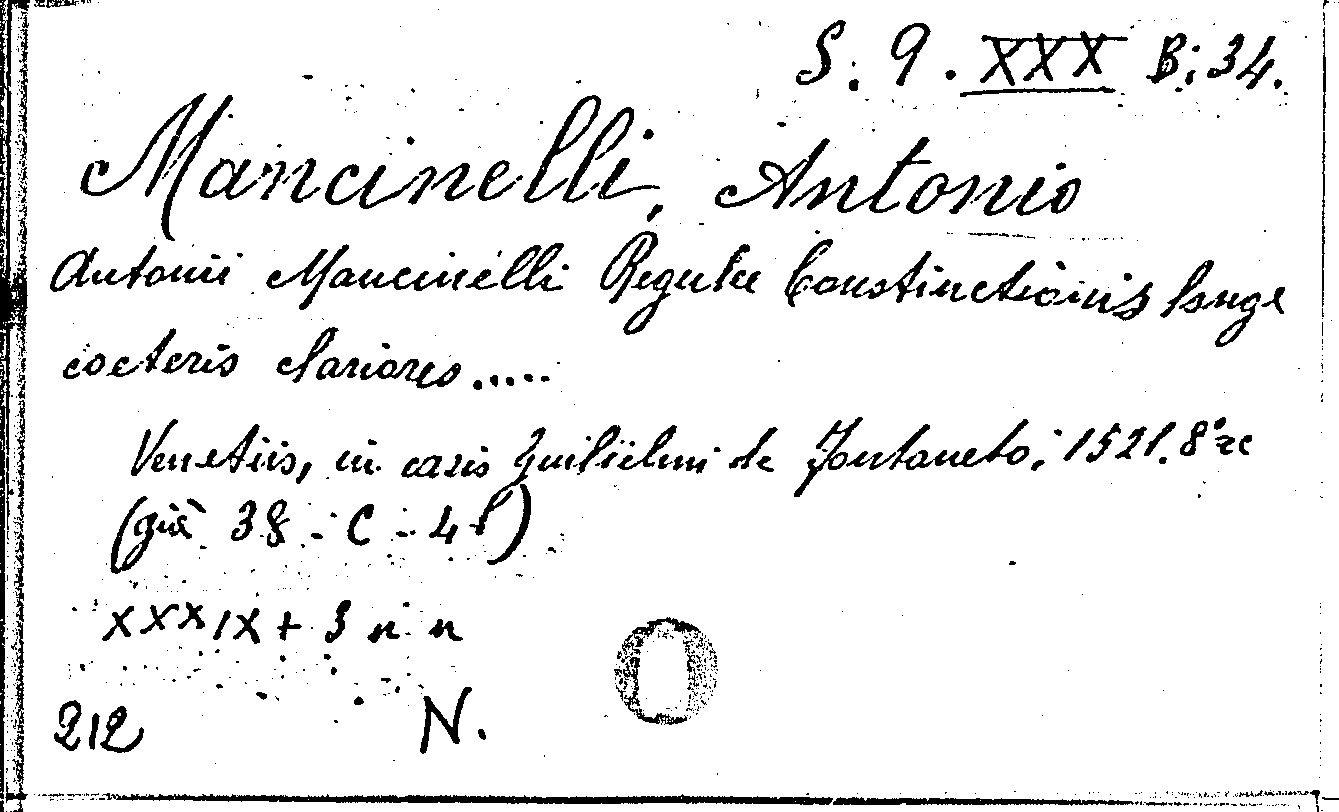 S. 9. XXX B: 34.
Mancinelli, Antonio
Antonii Mancinelli Regulae Constinctionis longe
coeteris clariores.....
Venetiis, in casis Guilielmi de Fontaneto; 1521. 8°
(già 38 - C - 4
XXXIX + 3 n n
212 N.